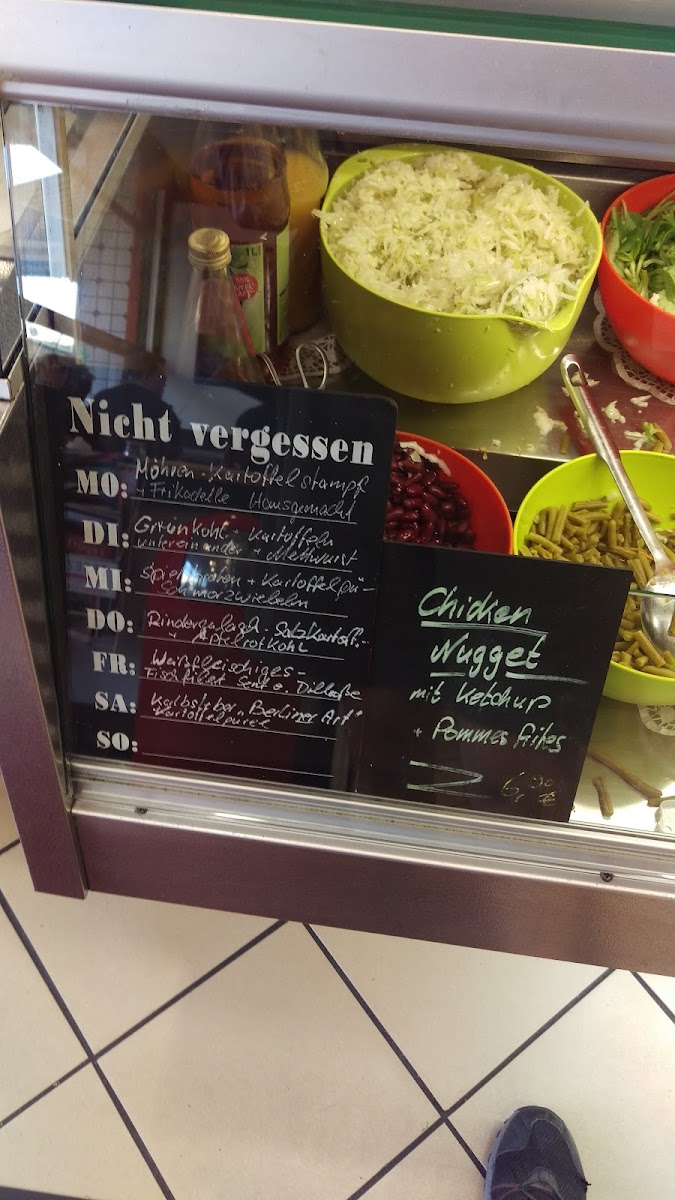 Nicht vergessen
MO: Möhren-Kartoffelstampf
+ Frikadelle Hausgemacht
DI: Grünkohl - Kartoffeln
untereinander + Mettwurst
MI: + Kartoffelpü-
Schmorzwiebeln
DO: Rindergulasch - Salzkartoff.-
+ Apfelrotkohl
FR: Weißfleischiges-
Fischfilet Senf o. Dillsoße
SA: Kalbsleber "Berliner Art"
Kartoffelpüree
SO:
Chicken
Nugget
mit Ketchup
+ Pommes frites
6,00 €
1L